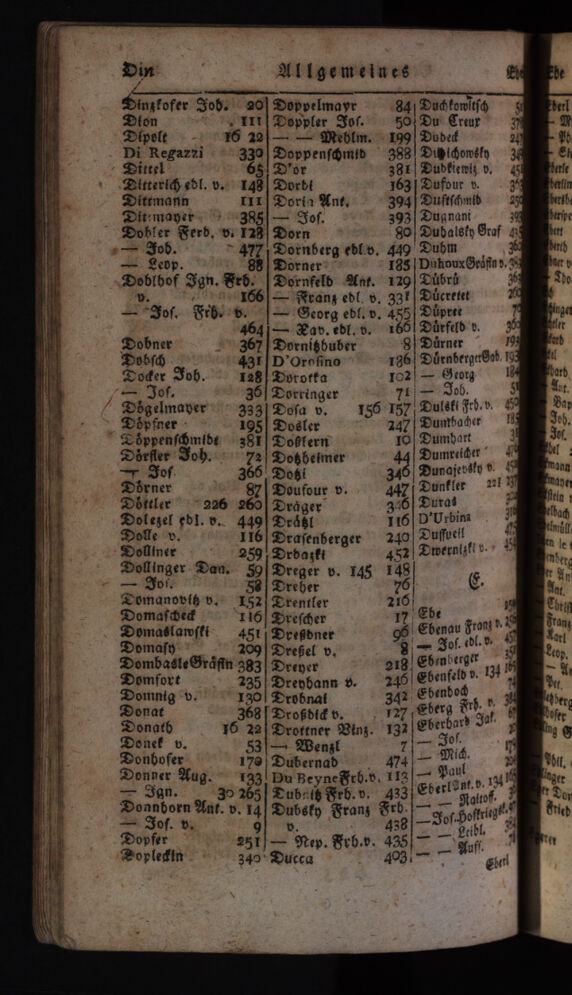 Din
Allgemeines
Dinzkofer Joh. 20
Dion 111
Dipolt 16 22
Di Regazzi 330
Dittel 65
Ditterich edl. v. 148
Dittmann 111
Ditmayer 385
Dobler Ferd. v. 128
— Joh. 477
— Leop. 88
Doblhof Ign. Frh.
v. 166
— Jos. Frh. v.
464
Dobner 367
Dobsch 431
Docker Joh. 128
— Jos. 36
Dögelmayer 333
Döpfner 195
Döppenschmidt 381
Dörfler Joh. 72
— Jos. 366
Dörner 87
Döttler 226 260
Dolezel edl. v. 449
Dolle v. 116
Dolliner 259
Dollinger Dan. 59
— Jos. 58
Domanovitz v. 152
Domascheck 116
Domaslawski 451
Domasy 209
Dombasle Gräfin 383
Domfort 235
Domnig v. 130
Donat 368
Donath 16 22
Donek v. 53
Donhofer 170
Donner Aug. 133
— Ign. 30 265
Donnhorn Ant. v. 14
— Jos. v. 9
Dopfer 251
Dopleckin 340
Doppelmayr 84
Doppler Jos. 50
— — Mehlm. 199
Doppenschmid 388
D'or 381
Dordi 163
Doria Ant. 394
— Jos. 393
Dorn 80
Dornberg edl. v. 449
Dorner 185
Dornfeld Ant. 129
— Franz edl. v. 331
— Georg edl. v. 455
— Xav. edl. v. 166
Dornitzhuber 8
D'Orosino 186
Dorotka 102
Dorringer 71
Dosa v. 156 157
Dosler 247
Dostern 10
Dotzheimer 44
Dotzi 346
Doufour v. 447
Dräger 306
Drätzl 116
Drasenberger 240
Drbazki 452
Dreger v. 145 148
Dreher 76
Drentler 216
Drescher 17
Dreßdner 96
Dreßel v. 8
Dreyer 218
Dreyhann v. 246
Drobnai 342
Droßdick v. 127
Drottner Vinz. 132
— Wenzl 7
Dubernad 474
Du Beyne Frh. v. 113
Dubnitz Frh. v. 433
Dubsky Franz Frh.
v. 438
— Nep. Frh. v. 435
Ducca 403
Duchkowitsch
Du Creux
Dudeck
Dudichowsky
Dudkiewiz v.
Dufour v.
Duftschmid
Dugnani
Duhalsky Graf
Duhm
Duhoux Gräfin v.
Dübrü
Dücretet
Düpree
Dürfeld v.
Dürner
Dürnberger Gab. 193
— Georg 184
— Joh.
Dulski Frh. v.
Dumbacher
Dumhart
Dumreicher
Dunajevsky v.
Dunkler 221
Duras
D'Urbina
Duffueil
Dwernizki v.
E.
Ebe
Ebenau Franz v.
— Jos. edl. v.
Ebenberger
Ebenfeld v. 134
Ebenhoch
Eberg Frh. v.
Eberhard Jak.
— Jos.
— Mich.
— Paul
Eberl Ant. v. 134
— — Raitoff.
— Jos. Hofkriegsk.
— — Leibl.
— — Auff.
Eberl